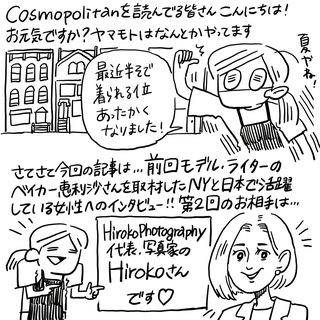 Cosmopolitanを読んでる皆さんこんにちは!
お元気ですか?ヤマモトはなんとかやってます
最近半そで
着られる位
あったかく
なりました!
夏やね!
さてさて今回の記事は…前回モデル・ライターの
ベイカー恵利沙さんを取材したNYと日本で活躍
している女性へのインタビュー!!第2回のお相手は…
HirokoPhotography
代表、写真家の
Hirokoさん
です♡